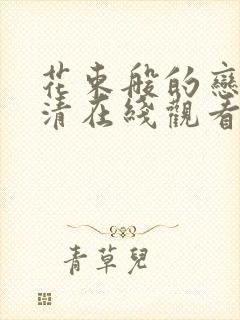 花束般的戀
清在綫觀看
青草兒